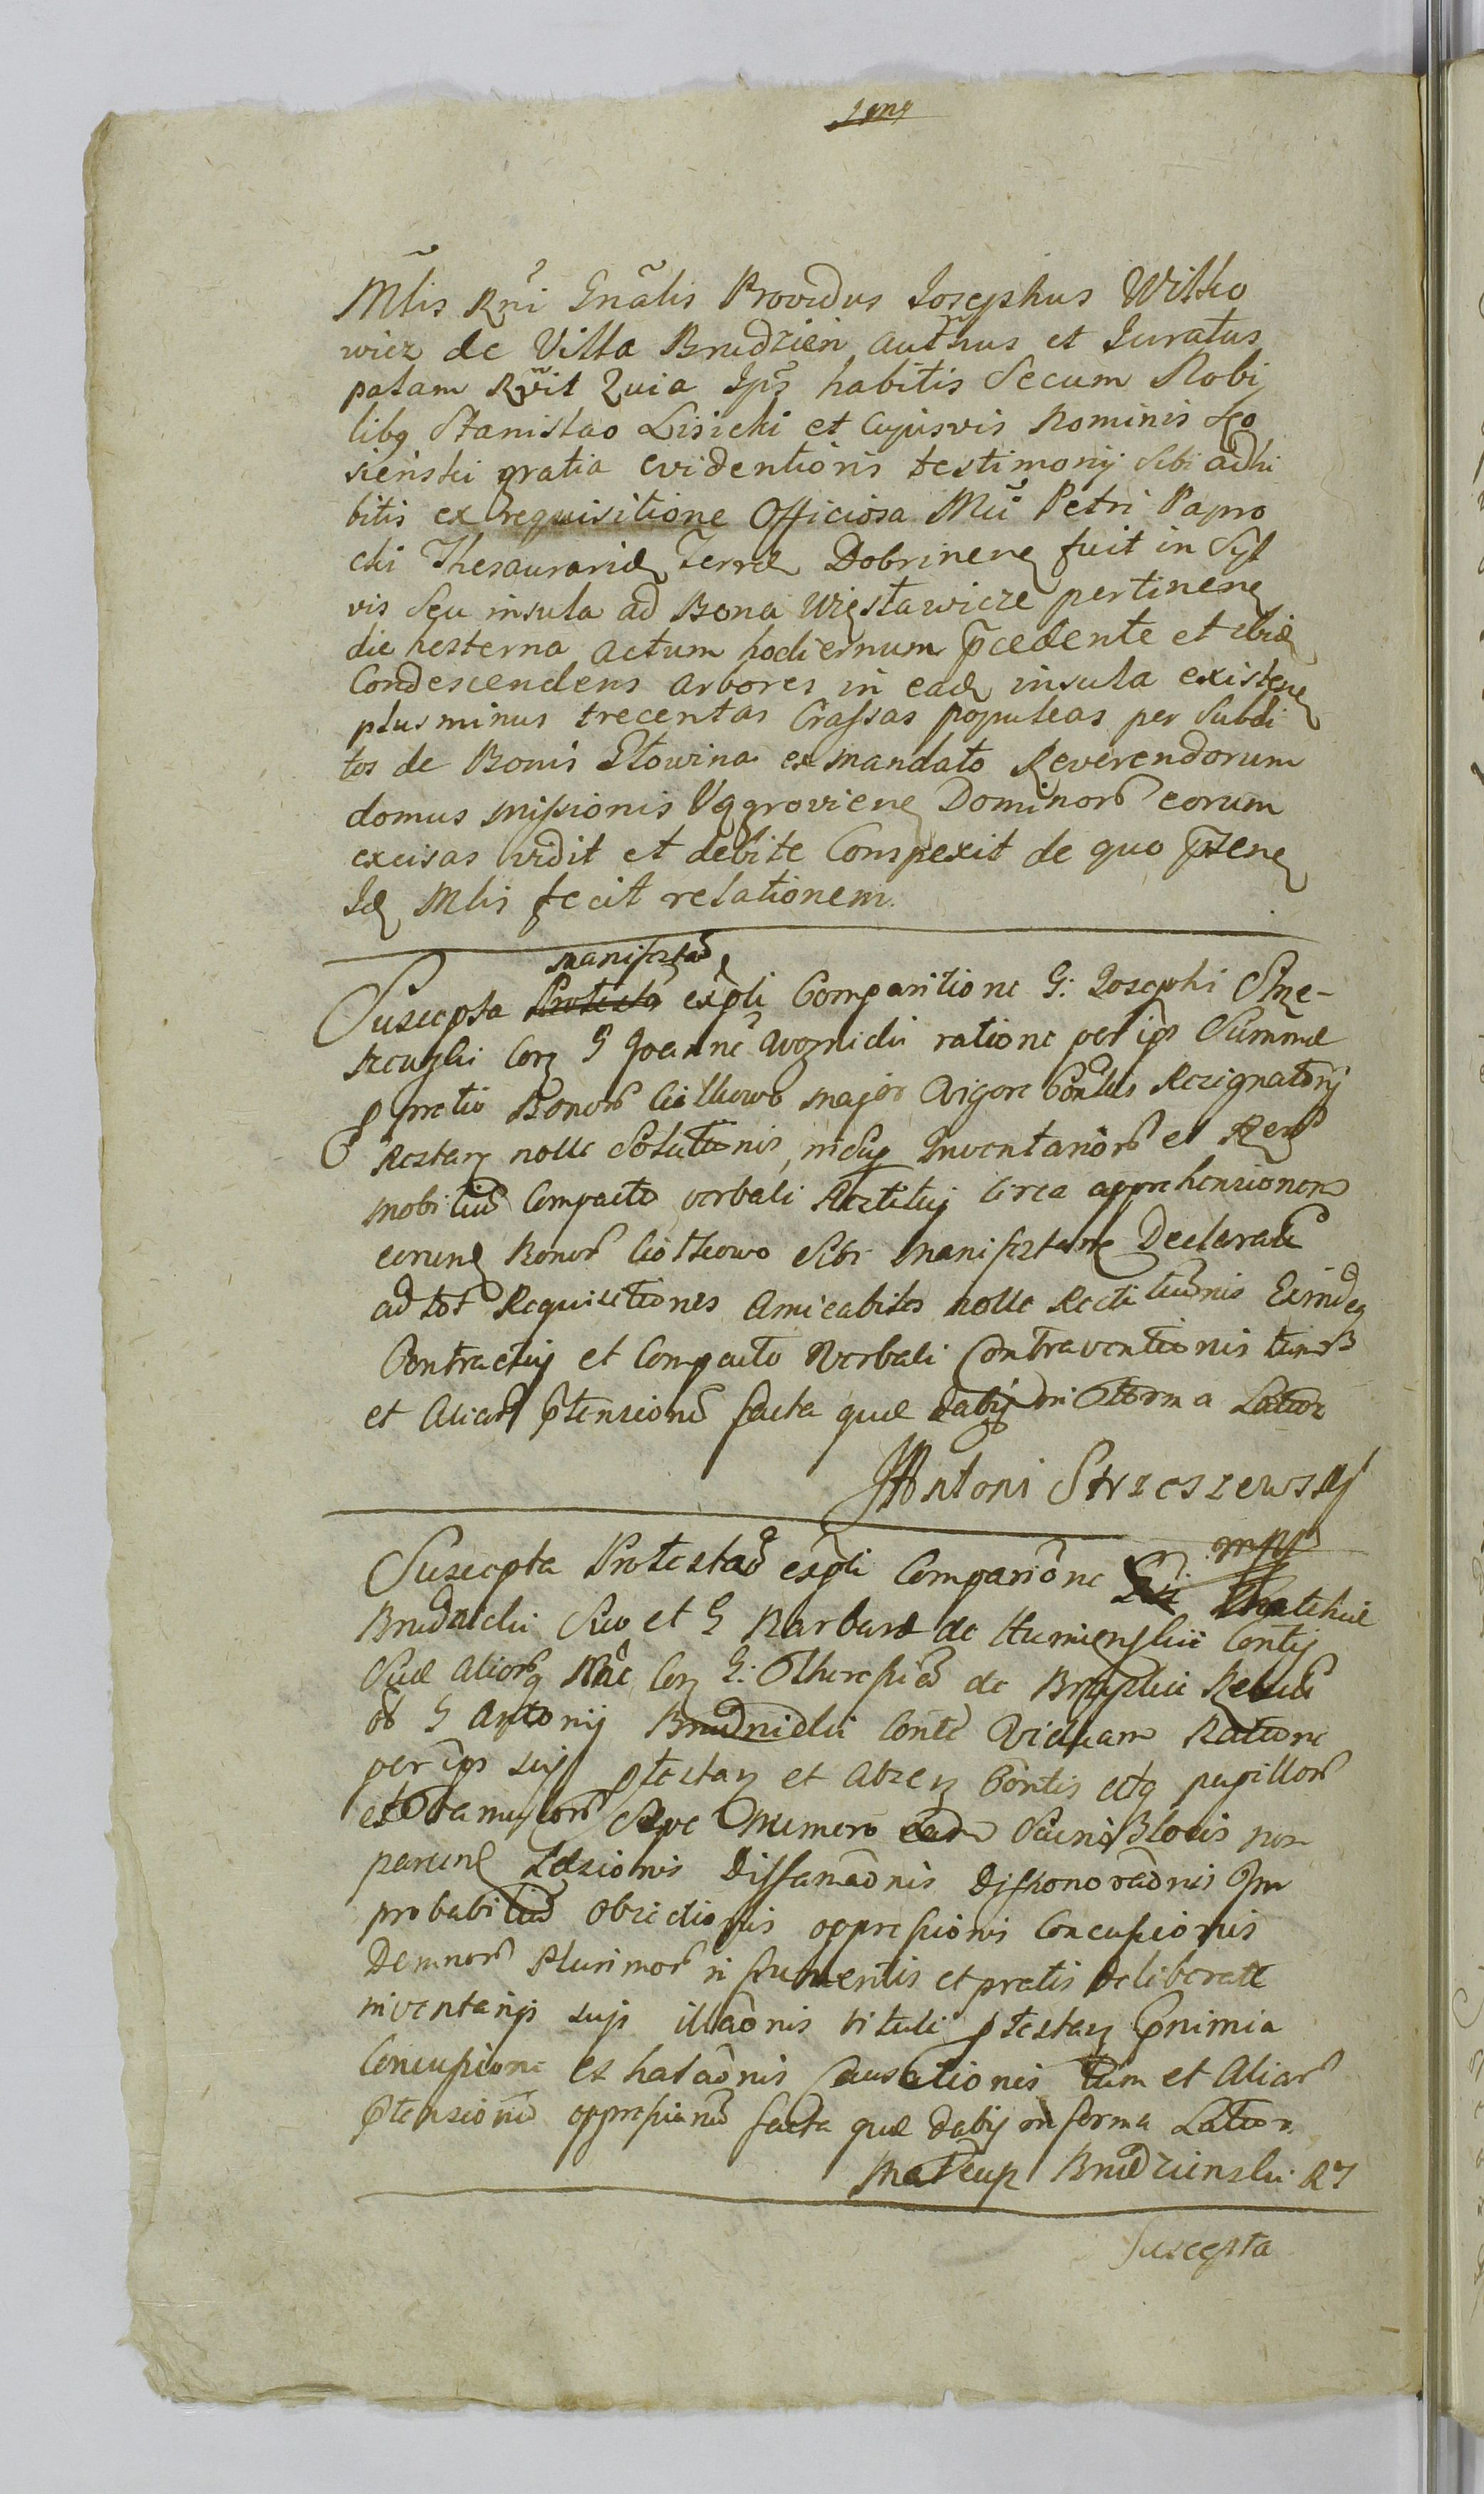 Mlis Rni Gnalis Providus Iosephus Witko
wicz de Villa Brudzien authus et Iuratus
palam Rvit Quia Ips habitis Secum Nobi
libq Stanislao Lisicki et Cujusvis Nominis Ko
sienski gratia evidentioris testimonij Sibi adhi
bitis ex requisitione Officiosa Mci Petri Papro
cki Thesaurarii Terræ Dobrinen fuit in Syl
vis Seu insula ad Bona Więsławicze pertinen
die hesterna actum hodiernum pcedente et ibid
Condescendens arbores in ead insula existen
plus minus trecentas Crassas populeas per Subdi
tos de Bonis Głowina ex mandato Reverendorum
domus missionis Uggrovien Dominor eorum
excisas vidit et debite Conspexit de quo pten
Id Mlis fecit relationem.
manifestao
Suscepta expli Comparitione G: Josephi Strze-
szewski Con G Joanne Woznicki ratione per ips Summæ
p pretio Bonor Ciółkowo major vigore Contus Resignatorij
Restan nolle Solutionis, nidup Inventarior et Rer
mobiliu Compacto verbali Restituj Circa apprehensionem
eorund Bonor Ciołkowo Sibi manifestane Declarati
ad tot Requisitiones Amicabiles nolle Restitutionis Eimdeq
Contractuj et Compacto Verbali Contraventionis tumo
et Aliar ptensionu facta quæ dabij in Forma Latior
JAntoni Strzeszewskj
mpp
Suscepta Protestao expli Comparione Mathiæ
Brudnicki Suo et G Barbaræ de Humienskie Contij
Suæ Aliorq Nne Con G: Theresiã de Relicti
ob G Antonij Brudnicki Conte Viduam Ratione
per ips suj ptestan et Absen Contis ectq pupillor
et Famulor Sæpe Numero Blocis non
parund Læsionis Diffamaonis Dishonoraonis Im
probabiliu Obsidionis oppressionis Concussionis
Damnor Plurimor in frumentis et pratis Deliberate
inventarijs suis illaonis tituli ptestan Pnimia
Concussione exhalaonis Causationis tum et Aliar
Ptensionu oppresionu facta quæ Dabij in forma Latiori
Mateusz Brudzienski RZ
Suscepta